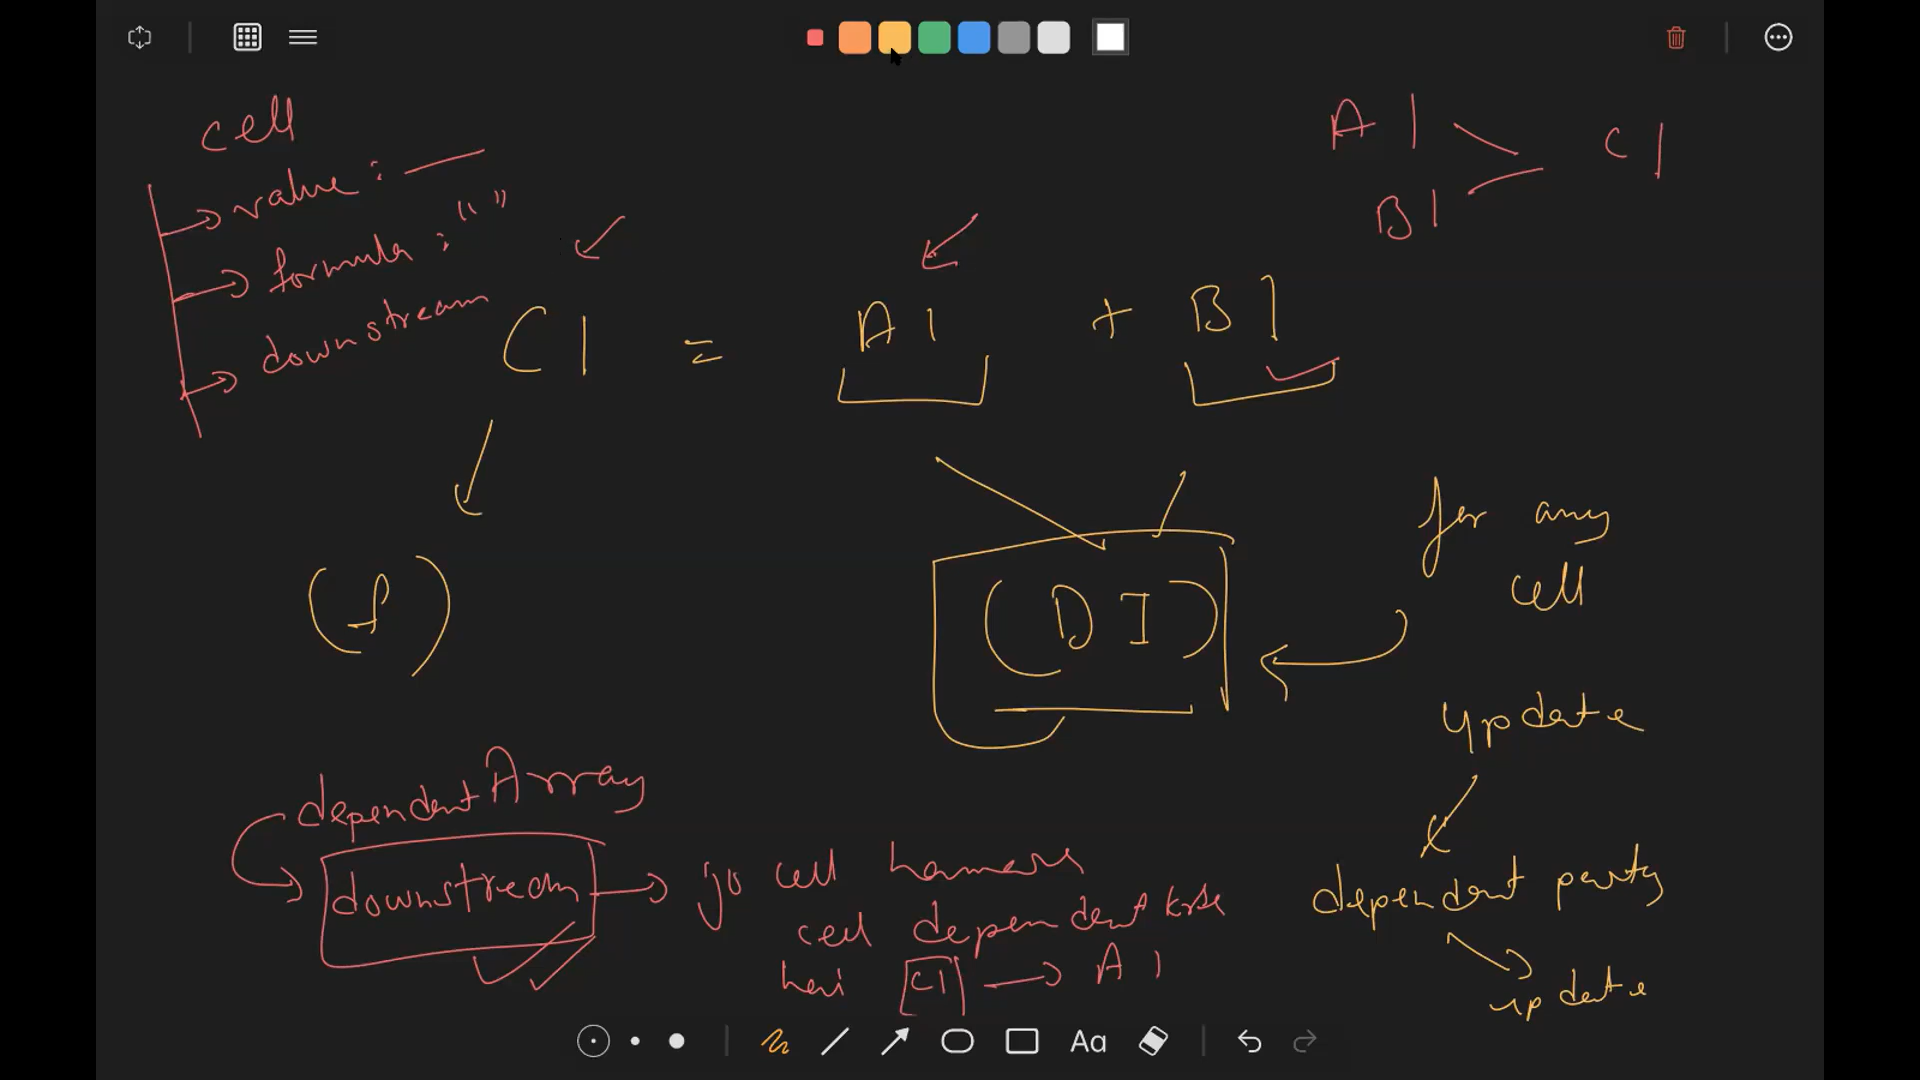 cell
value : —
formula : " "
downstream
A1
B1
C1
C1 = A1 + B1
(f)
(DI)
for any
cell
update
dependent party
update
dependentArray
downstream → jo cell hamare
cell dependent krte
hai C1 → A1
Aa